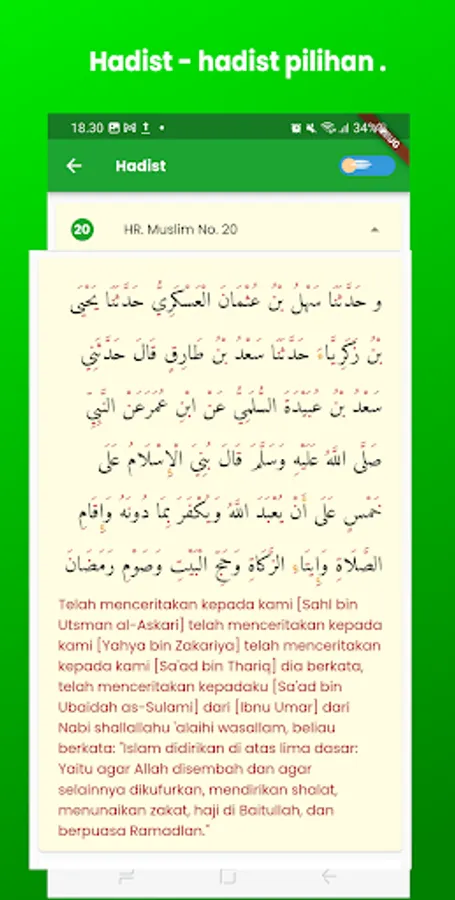 Hadist - hadist pilihan .
18.30
34%
Hadist
20 HR. Muslim No. 20
و حَدَّثَنَا سَهْلُ بْنُ عُثْمَانَ الْعَسْكَرِيُّ حَدَّثَنَا يَحْيَى
بْنُ زَكَرِيَّاءَ حَدَّثَنَا سَعْدُ بْنُ طَارِقٍ قَالَ حَدَّثَنِي
سَعْدُ بْنُ عُبَيْدَةَ السُّلَمِيُّ عَنْ ابْنِ عُمَرَعَنْ النَّبِيِّ
صَلَّى اللَّهُ عَلَيْهِ وَسَلَّمَ قَالَ بُنِيَ الْإِسْلَامُ عَلَى
خَمْسٍ عَلَى أَنْ يُعْبَدَ اللَّهُ وَيُكْفَرَ بِمَا دُونَهُ وَإِقَامِ
الصَّلَاةِ وَإِيتَاءِ الزَّكَاةِ وَحَجِّ الْبَيْتِ وَصَوْمِ رَمَضَانَ
Telah menceritakan kepada kami [Sahl bin
Utsman al-Askari] telah menceritakan kepada
kami [Yahya bin Zakariya] telah menceritakan
kepada kami [Sa'ad bin Thariq] dia berkata,
telah menceritakan kepadaku [Sa'ad bin
Ubaidah as-Sulami] dari [Ibnu Umar] dari
Nabi shallallahu 'alaihi wasallam, beliau
berkata: "Islam didirikan di atas lima dasar:
Yaitu agar Allah disembah dan agar
selainnya dikufurkan, mendirikan shalat,
menunaikan zakat, haji di Baitullah, dan
berpuasa Ramadlan."